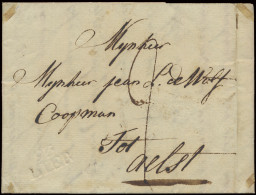 Mynheer
Mynheer jean L. de Wolf
Coopman
Tot
aelst